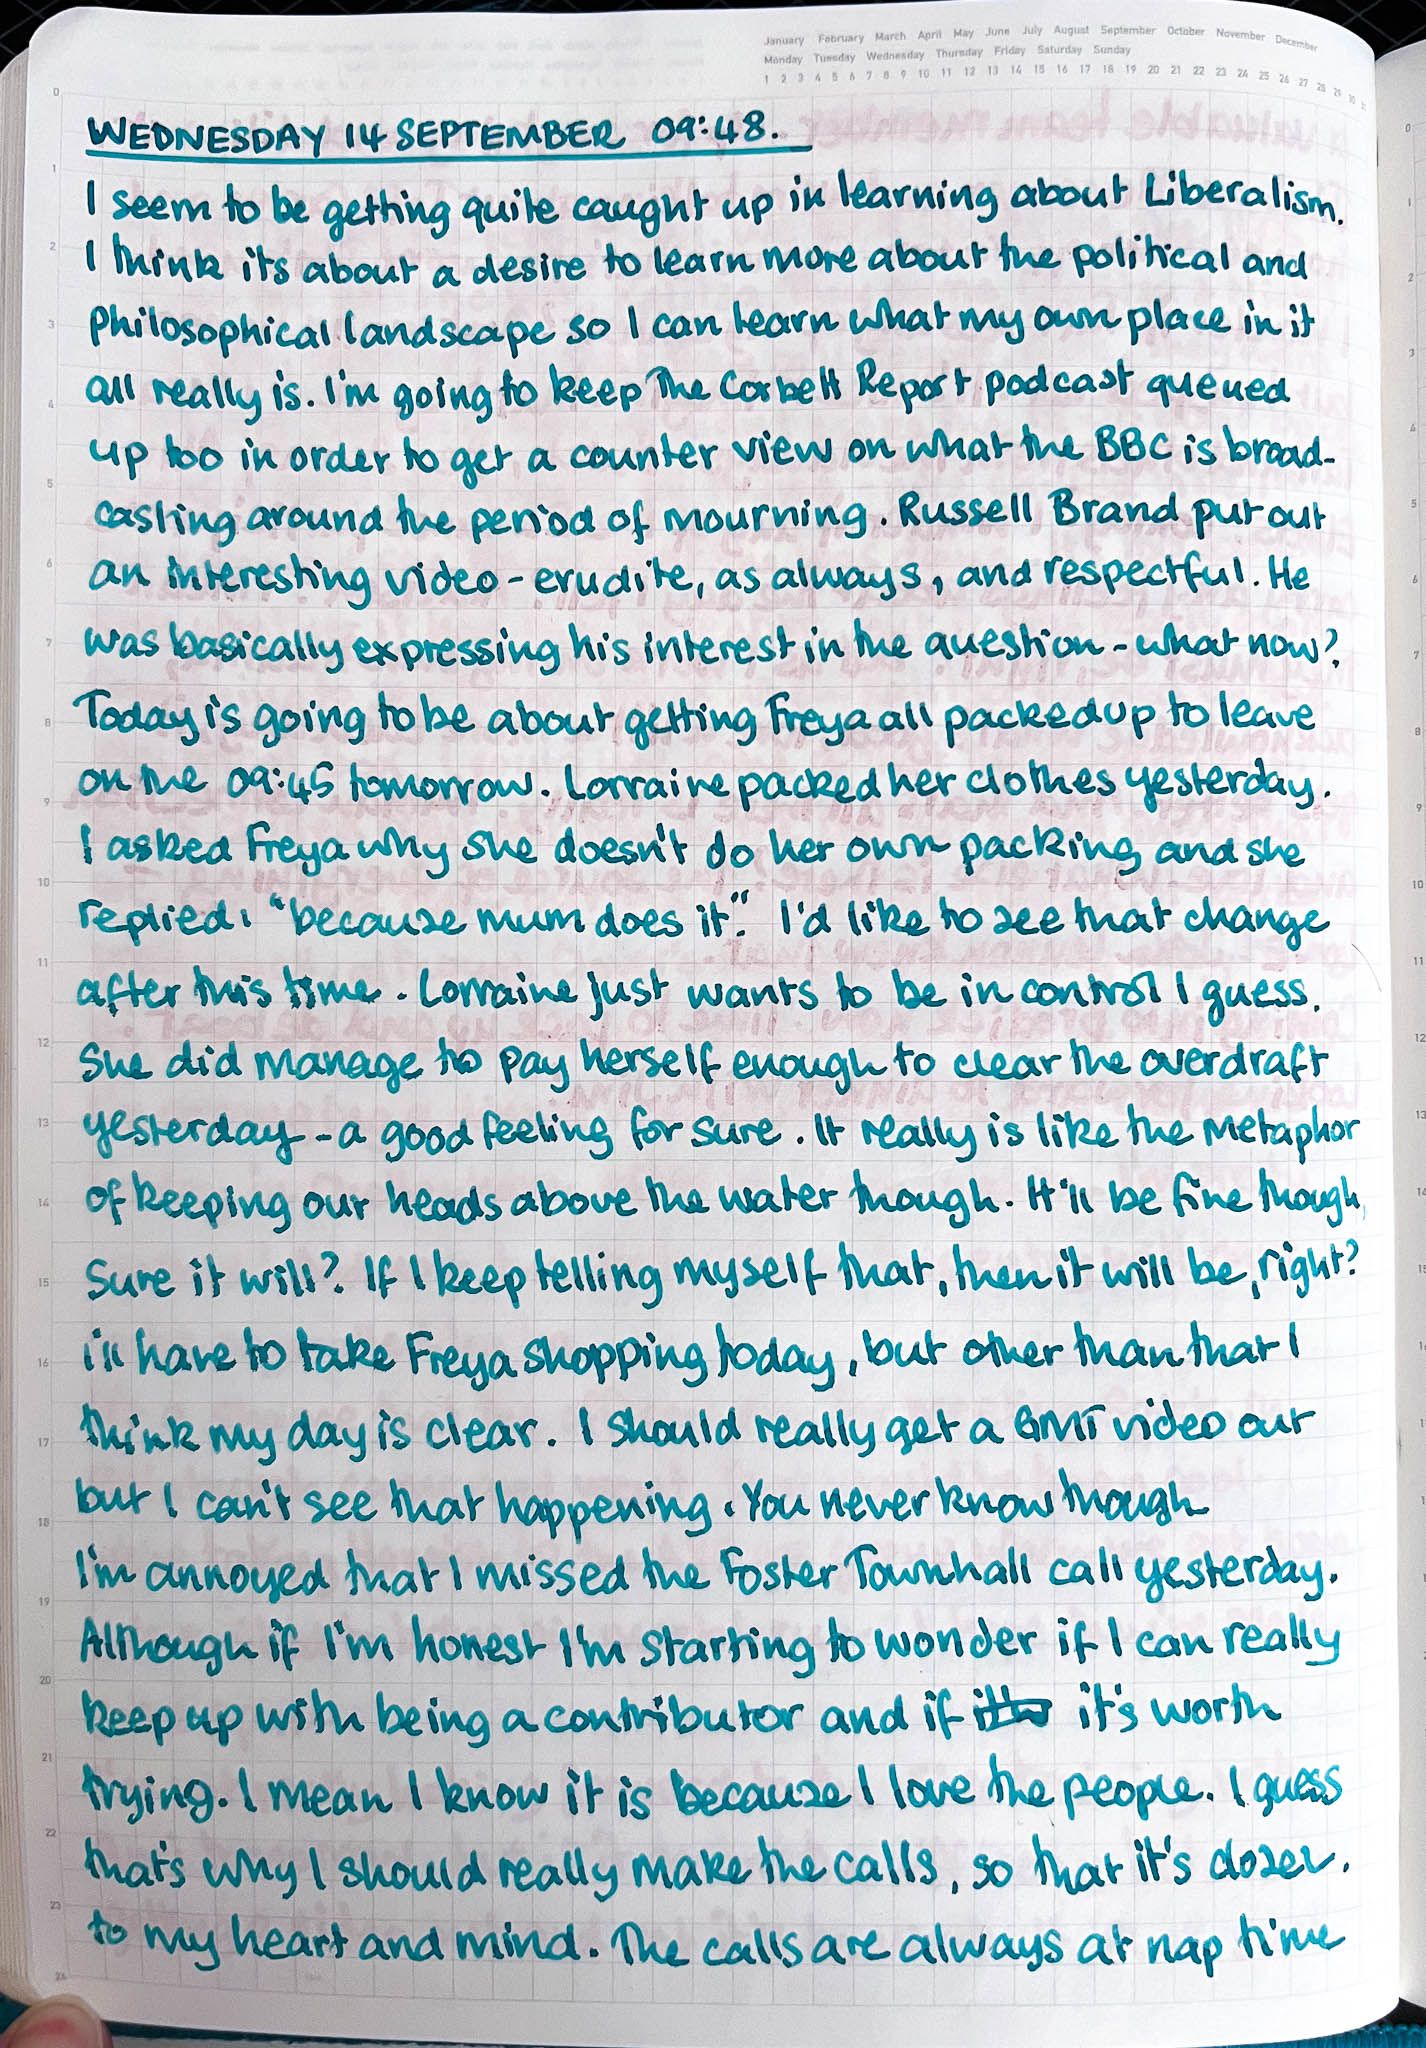 January February March April May June July August September October November December
Monday Tuesday Wednesday Thursday Friday Saturday Sunday
1 2 3 4 5 6 7 8 9 10 11 12 13 14 15 16 17 18 19 20 21 22 23 24 25 26 27 28 29 30 31
WEDNESDAY 14 SEPTEMBER 09:48.
I seem to be getting quite caught up in learning about Liberalism.
I think its about a desire to learn more about the political and
philosophical landscape so I can learn what my own place in it
all really is. I'm going to keep The Corbett Report podcast queued
up too in order to get a counter view on what the BBC is broad-
casting around the period of mourning. Russell Brand put out
an interesting video - erudite, as always, and respectful. He
was basically expressing his interest in the question - what now?
Today is going to be about getting Freya all packed up to leave
on the 09:45 tomorrow. Lorraine packed her clothes yesterday.
I asked Freya why she doesn't do her own packing and she
replied: "because mum does it". I'd like to see that change
after this time. Lorraine just wants to be in control I guess.
She did manage to pay herself enough to clear the overdraft
yesterday - a good feeling for sure. It really is like the metaphor
of keeping our heads above the water though. It'll be fine though,
Sure it will? If I keep telling myself that, then it will be, right?
i'll have to take Freya shopping today, but other than that I
think my day is clear. I should really get a GMT video out
but I can't see that happening. You never know though
I'm annoyed that I missed the Foster Townhall call yesterday.
Although if I'm honest I'm starting to wonder if I can really
keep up with being a contributor and if it's worth
trying. I mean I know it is because I love the people. I guess
that's why I should really make the calls, so that it's closer.
to my heart and mind. The calls are always at nap time